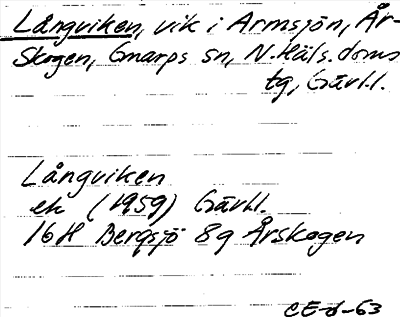 Långviken, vik i Armsjön, År-
skogen, Gnarps sn, N. Häls. doms
tg, Gävl.l.
Långviken
ek (1959) Gävl.l.
16H Bergsjö 8g Årskogen
CE-d-63